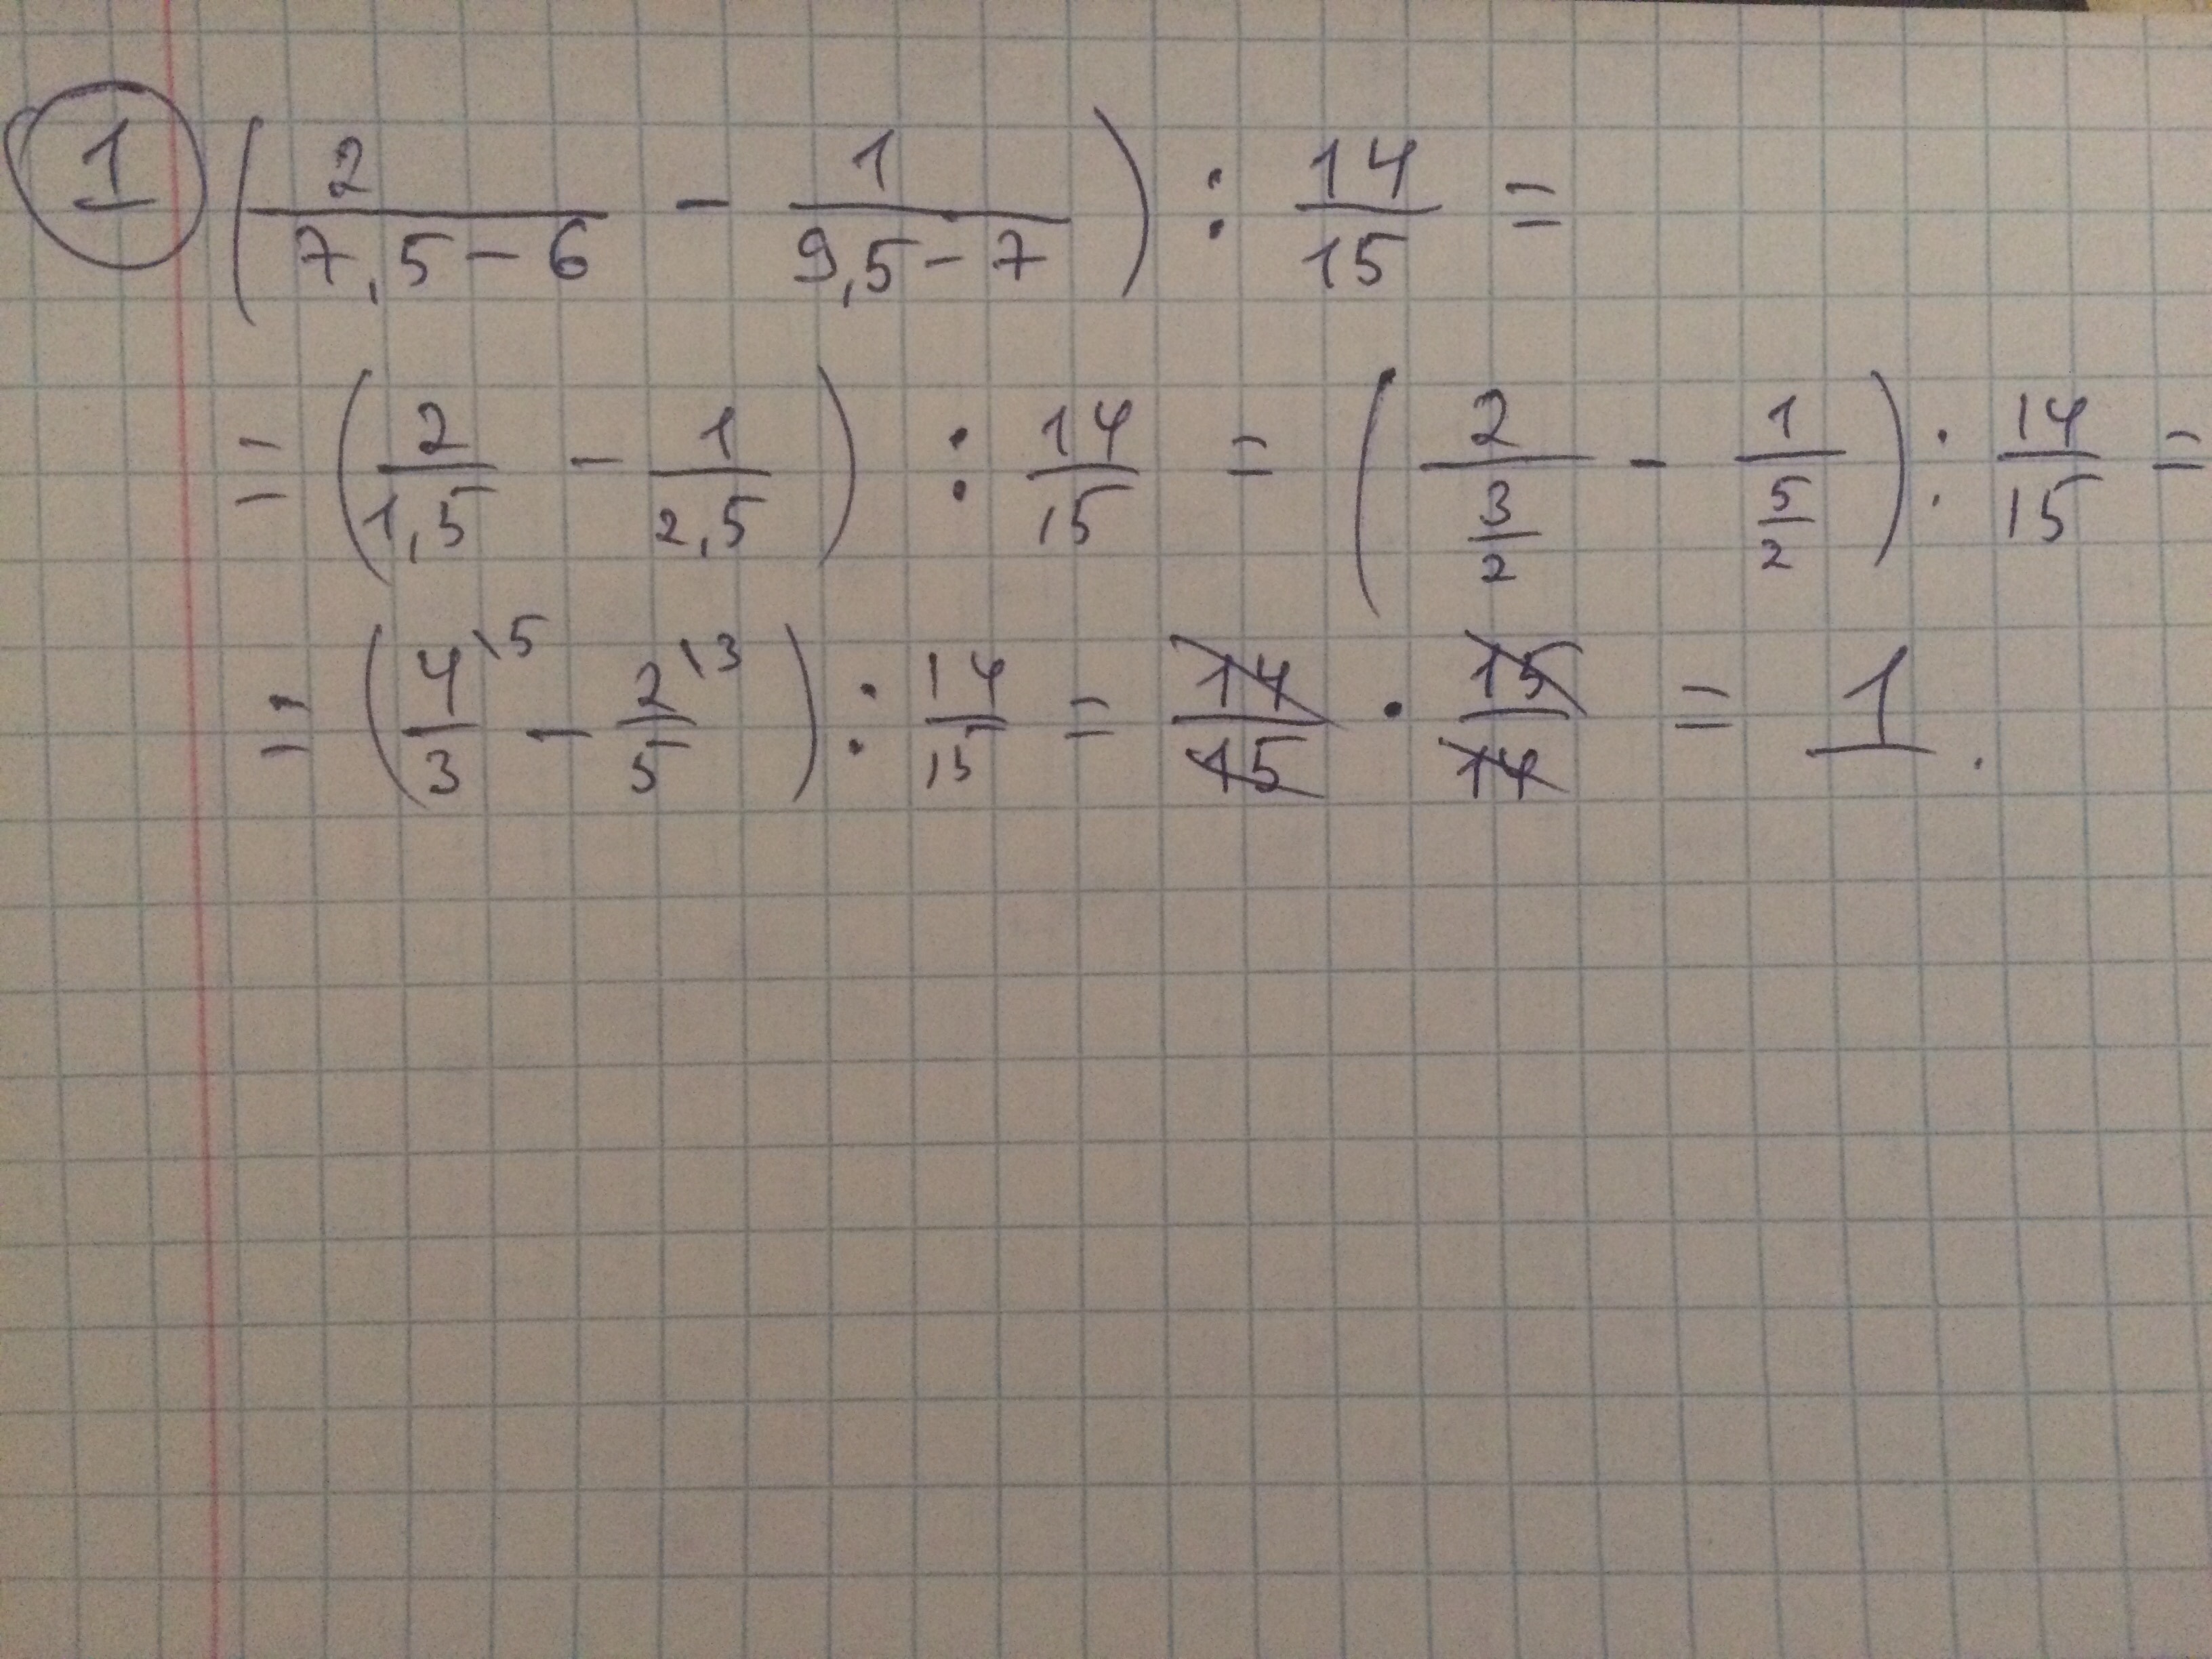 1 (2/(7,5-6) - 1/(9,5-7)) : 14/15 =
= (2/1,5 - 1/2,5) : 14/15 = (2/(3/2) - 1/(5/2)) : 14/15 =
= (4/3 \5 - 2/5 \3) : 14/15 = 14/15 · 15/14 = 1.